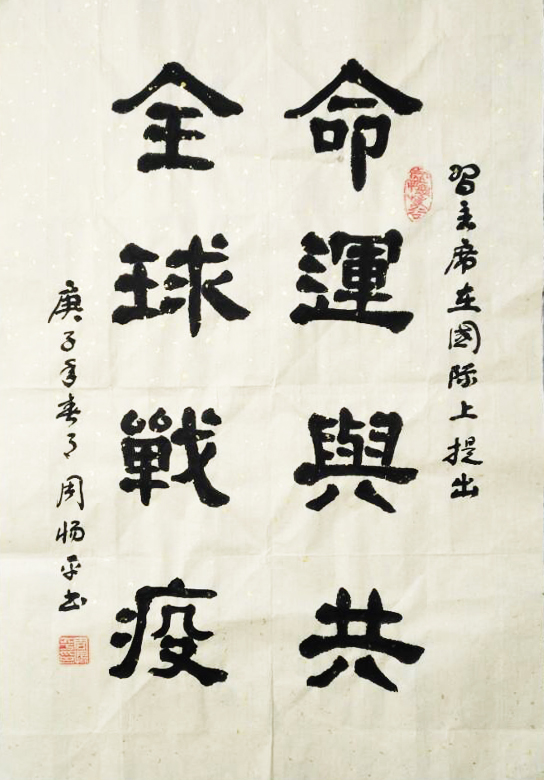 習主席在國际上提出
命運與共
全球戰疫
庚子年春月周惕平书